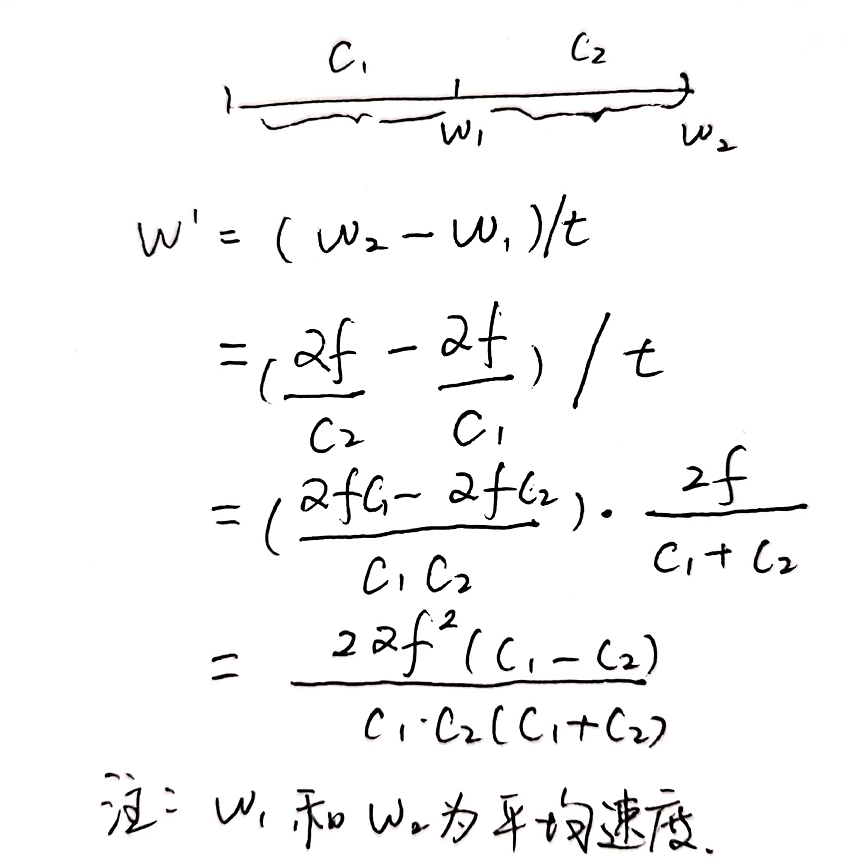 C₁ C₂
W₁ W₂
W' = (W₂ - W₁)/t
= (αf/C₂ - αf/C₁) / t
= ((αfC₁ - αfC₂)/(C₁C₂)) · 2f/(C₁+C₂)
= 2αf²(C₁-C₂)/(C₁·C₂(C₁+C₂))
注: W₁ 和 W₂ 为平均速度.